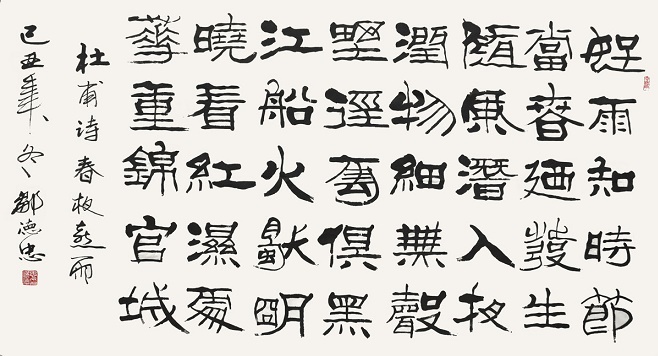 好雨知時節
當春廼發生
隨風潛入夜
潤物細無聲
野徑雲俱黑
江船火獨朙
曉看紅濕處
華重錦官城
杜甫诗春夜喜雨
己丑年冬鄒德忠